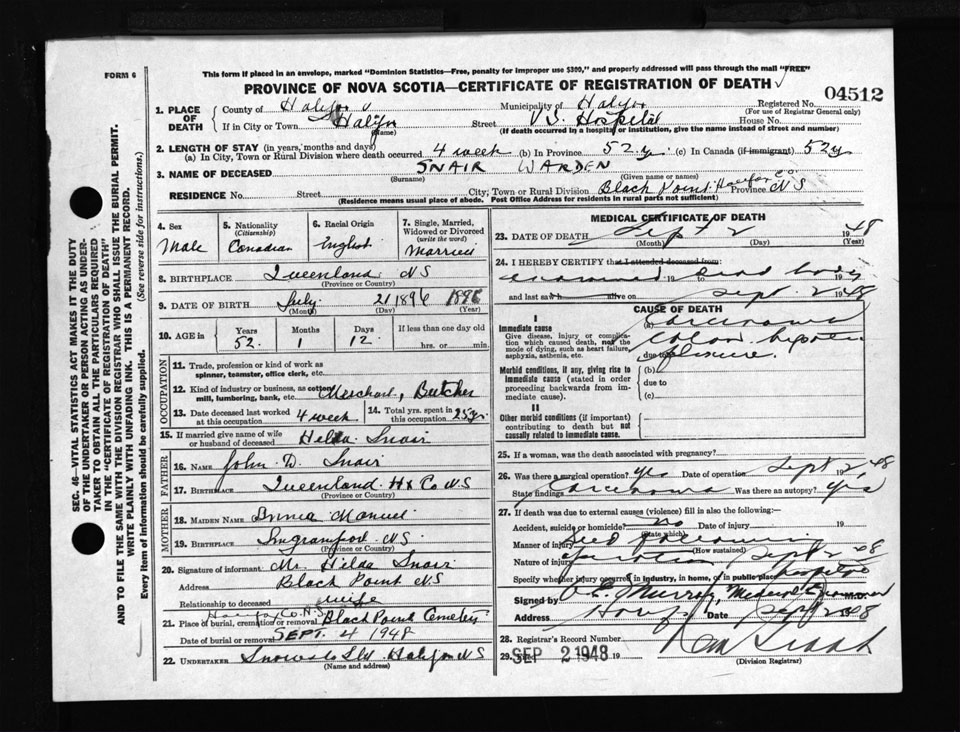 FORM 6
This form if placed in an envelope, marked "Dominion Statistics—Free, penalty for improper use $300," and properly addressed will pass through the mail "FREE"
PROVINCE OF NOVA SCOTIA—CERTIFICATE OF REGISTRATION OF DEATH
04512
1. PLACE OF DEATH
County of Halifax Municipality of Halifax Registered No.
(For use of Registrar General only)
If in City or Town Halifax Street V.G. Hospital House No.
(Name) (If death occurred in a hospital or institution, give the name instead of street and number)
2. LENGTH OF STAY (in years, months and days)
(a) In City, Town or Rural Division where death occurred 4 week (b) In Province 52 y. (c) In Canada (if immigrant) 52 y
3. NAME OF DECEASED SNAIR WARDEN
(Surname) (Given name or names)
RESIDENCE No. Street City, Town or Rural Division Black Point Halifax Co. Province N S
(Residence means usual place of abode. Post Office Address for residents in rural parts not sufficient)
4. Sex Male
5. Nationality (Citizenship) Canadian
6. Racial Origin English
7. Single, Married, Widowed or Divorced (write the word) Married
8. BIRTHPLACE Queensland N S
(Province or Country)
9. DATE OF BIRTH July 21 1896 1896
(Month) (Day) (Year)
10. AGE in Years 52 Months 1 Days 12 If less than one day old hrs. or min.
OCCUPATION
11. Trade, profession or kind of work as spinner, teamster, office clerk, etc.
12. Kind of industry or business, as cotton mill, lumbering, bank, etc. Merchant, Butcher
13. Date deceased last worked at this occupation 4 week
14. Total yrs. spent in this occupation 25 yr
15. If married give name of wife or husband of deceased Hilda Snair
FATHER
16. NAME John D. Snair
17. BIRTHPLACE Queensland Hx Co N S
(Province or Country)
MOTHER
18. MAIDEN NAME Annie Manuel
19. BIRTHPLACE Ingramport N S.
(Province or Country)
20. Signature of informant Mr. Hilda Snair
Address Black Point N S
Relationship to deceased wife
Halifax Co. N.S.
21. Place of burial, cremation or removal Black Point Cemetery
Date of burial or removal SEPT. 4 1948
22. UNDERTAKER Snows Halifax N S
(Name and address)
MEDICAL CERTIFICATE OF DEATH
23. DATE OF DEATH Sept 2 1948
(Month) (Day) (Year)
24. I HEREBY CERTIFY that I attended deceased from
examined 19 to dead body 19
and last saw h alive on Sept. 2 1948
CAUSE OF DEATH
I
Immediate cause
Give disease, injury or complication which caused death, not the mode of dying, such as heart failure, asphyxia, asthenia, etc.
(a) Carcinoma
colon. hepatic
due to flexure.
Morbid conditions, if any, giving rise to immediate cause (stated in order proceeding backwards from immediate cause).
(b)
due to
(c)
II
Other morbid conditions (if important) contributing to death but not casually related to immediate cause.
25. If a woman, was the death associated with pregnancy?
26. Was there a surgical operation? yes Date of operation Sept 2, 48
State findings Carcinoma Was there an autopsy? yes
27. If death was due to external causes (violence) fill in also the following:
Accident, suicide or homicide? no Date of injury 19
(State which)
Manner of injury Died following
(How sustained)
Nature of injury operation Sept 2 48
Specify whether injury occurred in industry, in home, or in public place hospital
Signed by Murray, Medical Examiner M.D.
Address Date Sept 2 1948
28. Registrar's Record Number
29. Filed SEP 2 1948 19
(Division Registrar)
SEC. 46—VITAL STATISTICS ACT MAKES IT THE DUTY
OF THE UNDERTAKER OR PERSON ACTING AS UNDERTAKER TO OBTAIN ALL THE PARTICULARS REQUIRED
IN THE "CERTIFICATE OF REGISTRATION OF DEATH"
AND TO FILE THE SAME WITH THE DIVISION REGISTRAR WHO SHALL ISSUE THE BURIAL PERMIT.
WRITE PLAINLY WITH UNFADING INK. THIS IS A PERMANENT RECORD.
Every item of information should be carefully supplied. (See reverse side for instructions.)